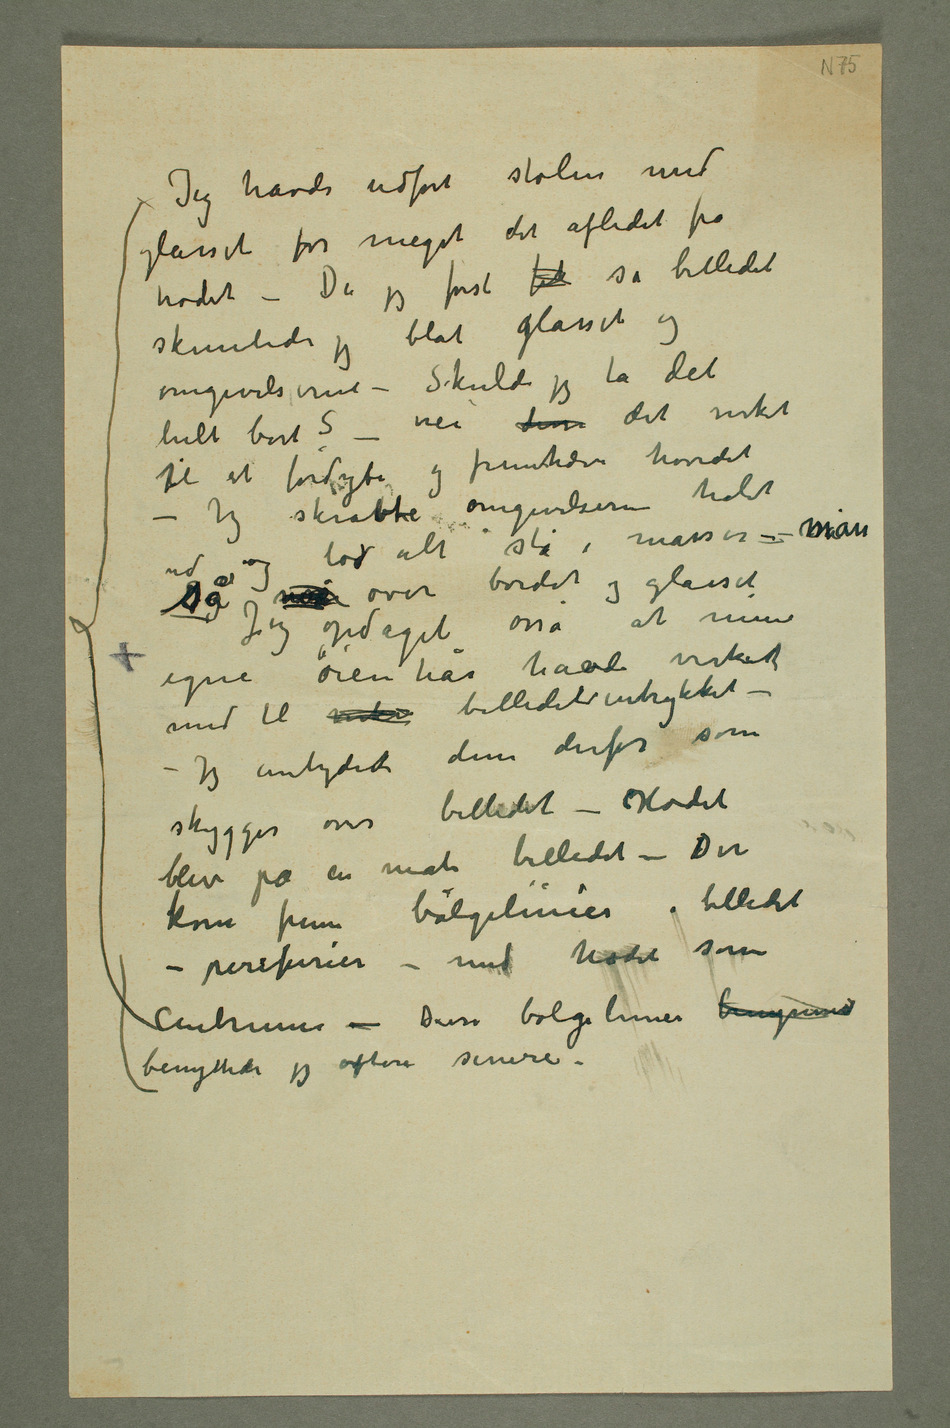 N75
Jeg havde udført stolen med
glasset for meget det afledet fra
hodet – Da jeg først så billedet
skimtede jeg blåt glasset og
omgivelserne – Skulde jeg ta det
helt bort? – nei det virket
til at fordybe og fremhæve hovedet
– Jeg skrabte omgivelserne halvt
ud og lod alt stå i masser – man
så over bordet og glasset
Jeg opdaget osså at mine
egne öienhår havde virket
med til billedetsintrykket –
– Jeg antydet dem derfor som
skygger over billedet – Hodet
blev på en måte billedet – Der
kom frem bölgelinier i billedet
– pereferier – med hodet som
Centrum – Disse bølgelinier
benyttede jeg oftere senere.